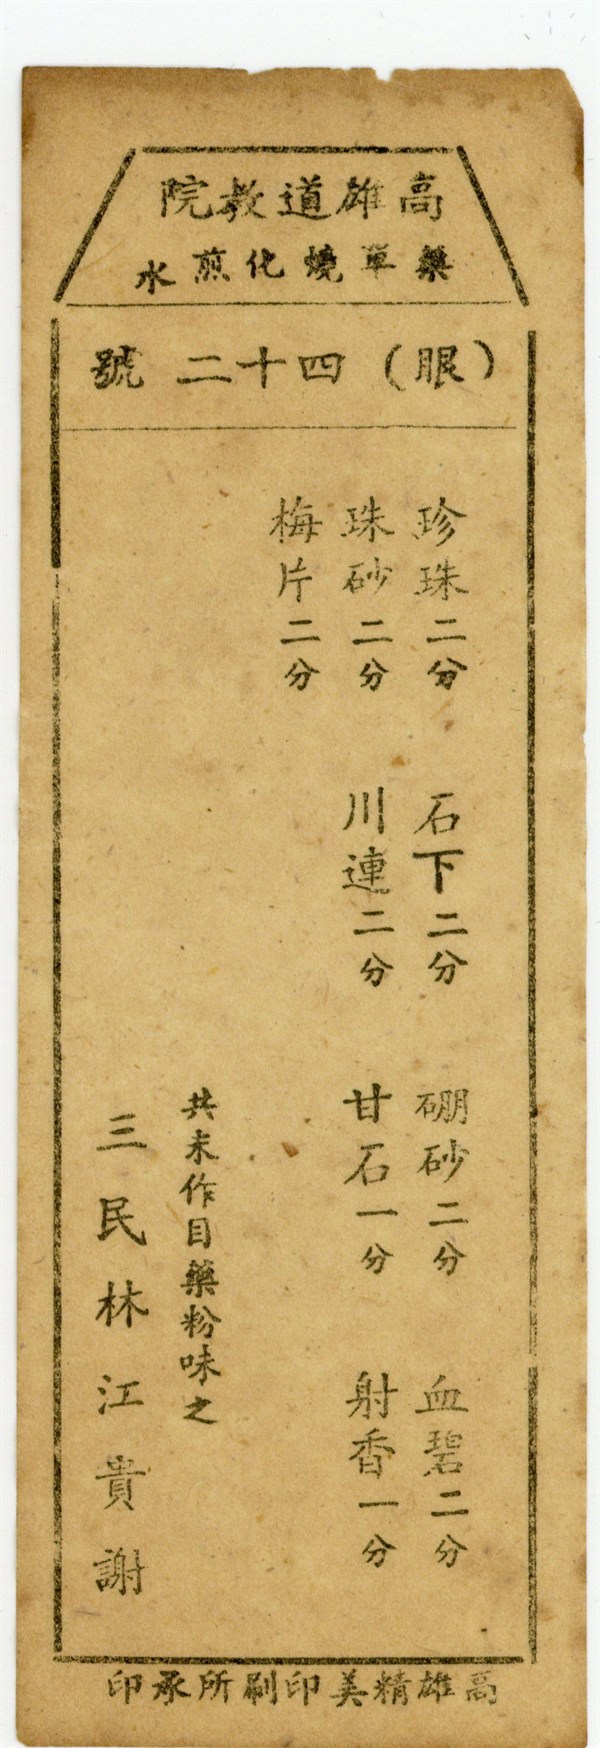 高雄道教院
藥單燒化煎水
（眼）四十二號
珍珠二分　石下二分　硼砂二分　血碧二分
珠砂二分　川連二分　甘石一分　射香一分
梅片二分
共末作目藥粉味之
三民林江貴謝
高雄精美印刷所承印